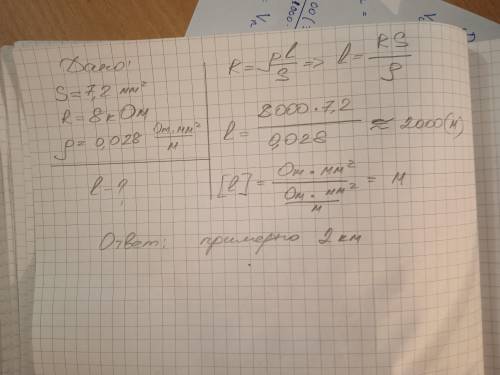 Дано:
S = 7,2 мм²
R = 8 кОм
ρ = 0,028 Ом·мм²/м
l - ?
R = ρl/S => l = RS/ρ
l = 8000·7,2/0,028 ≈ 2000 (м)
[l] = Ом·мм²/(Ом·мм²/м) = м
Ответ: примерно 2 км